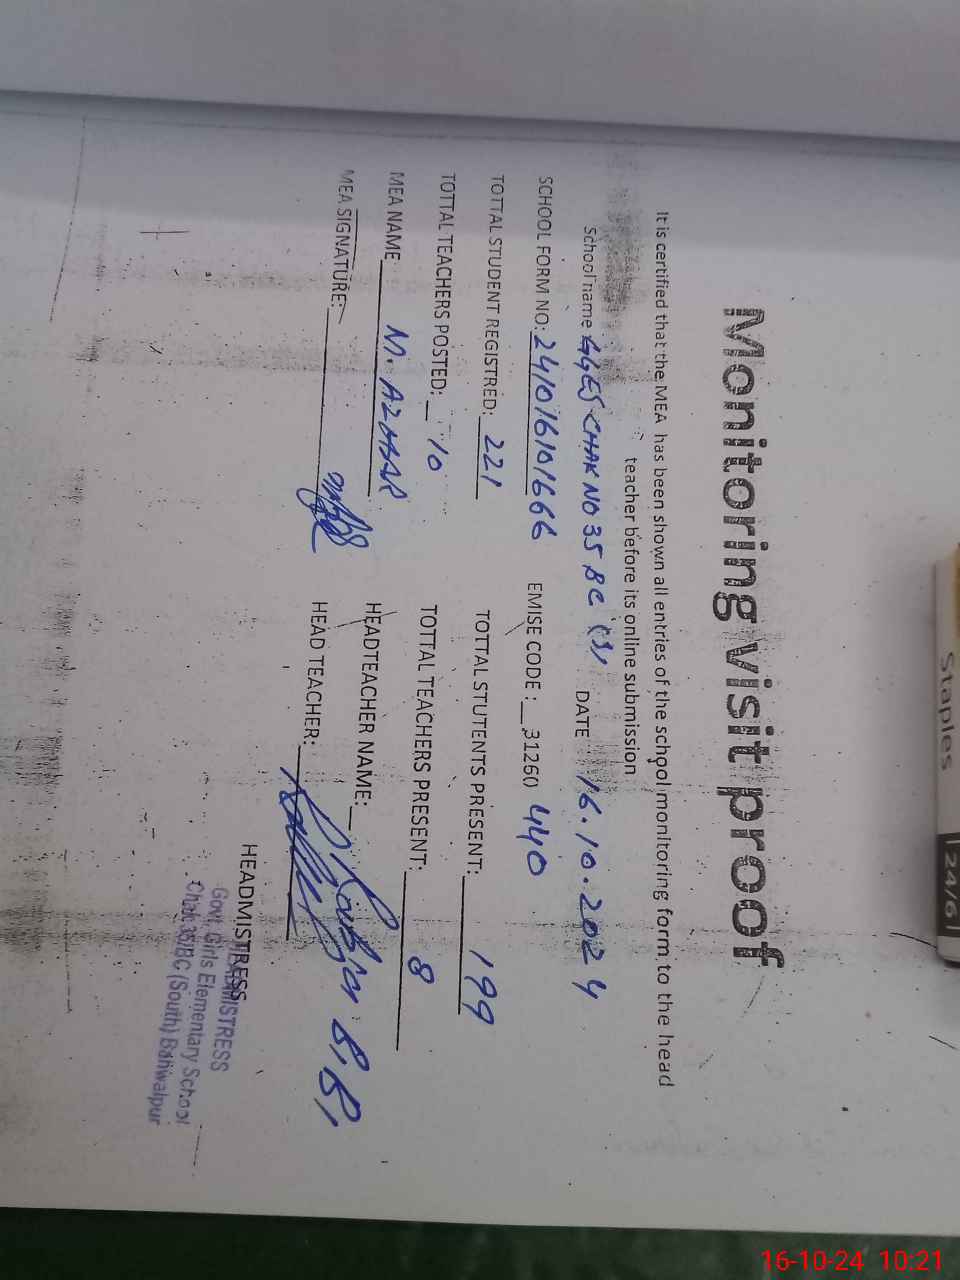 Monitoring visit proof
It is certified that the MEA has been shown all entries of the school monitoring form to the head
teacher before its online submission
School name GGES CHAK NO 35 BC (S) DATE 16.10.2024
SCHOOL FORM NO: 241016101666 EMISE CODE : 31260 440
TOTTAL STUDENT REGISTRED: 221 TOTTAL STUTENTS PRESENT: 199
TOTTAL TEACHERS POSTED: 10 TOTTAL TEACHERS PRESENT: 8
MEA NAME M. AZHAR HEADTEACHER NAME: Kausar BiBi
MEA SIGNATURE: HEAD TEACHER:
HEADMISTRESS
HEADMISTRESS
Govt. Girls Elementary School
Chak 35/BC (South) Bahwalpur
Staples
24/6
16-10-24 10:21